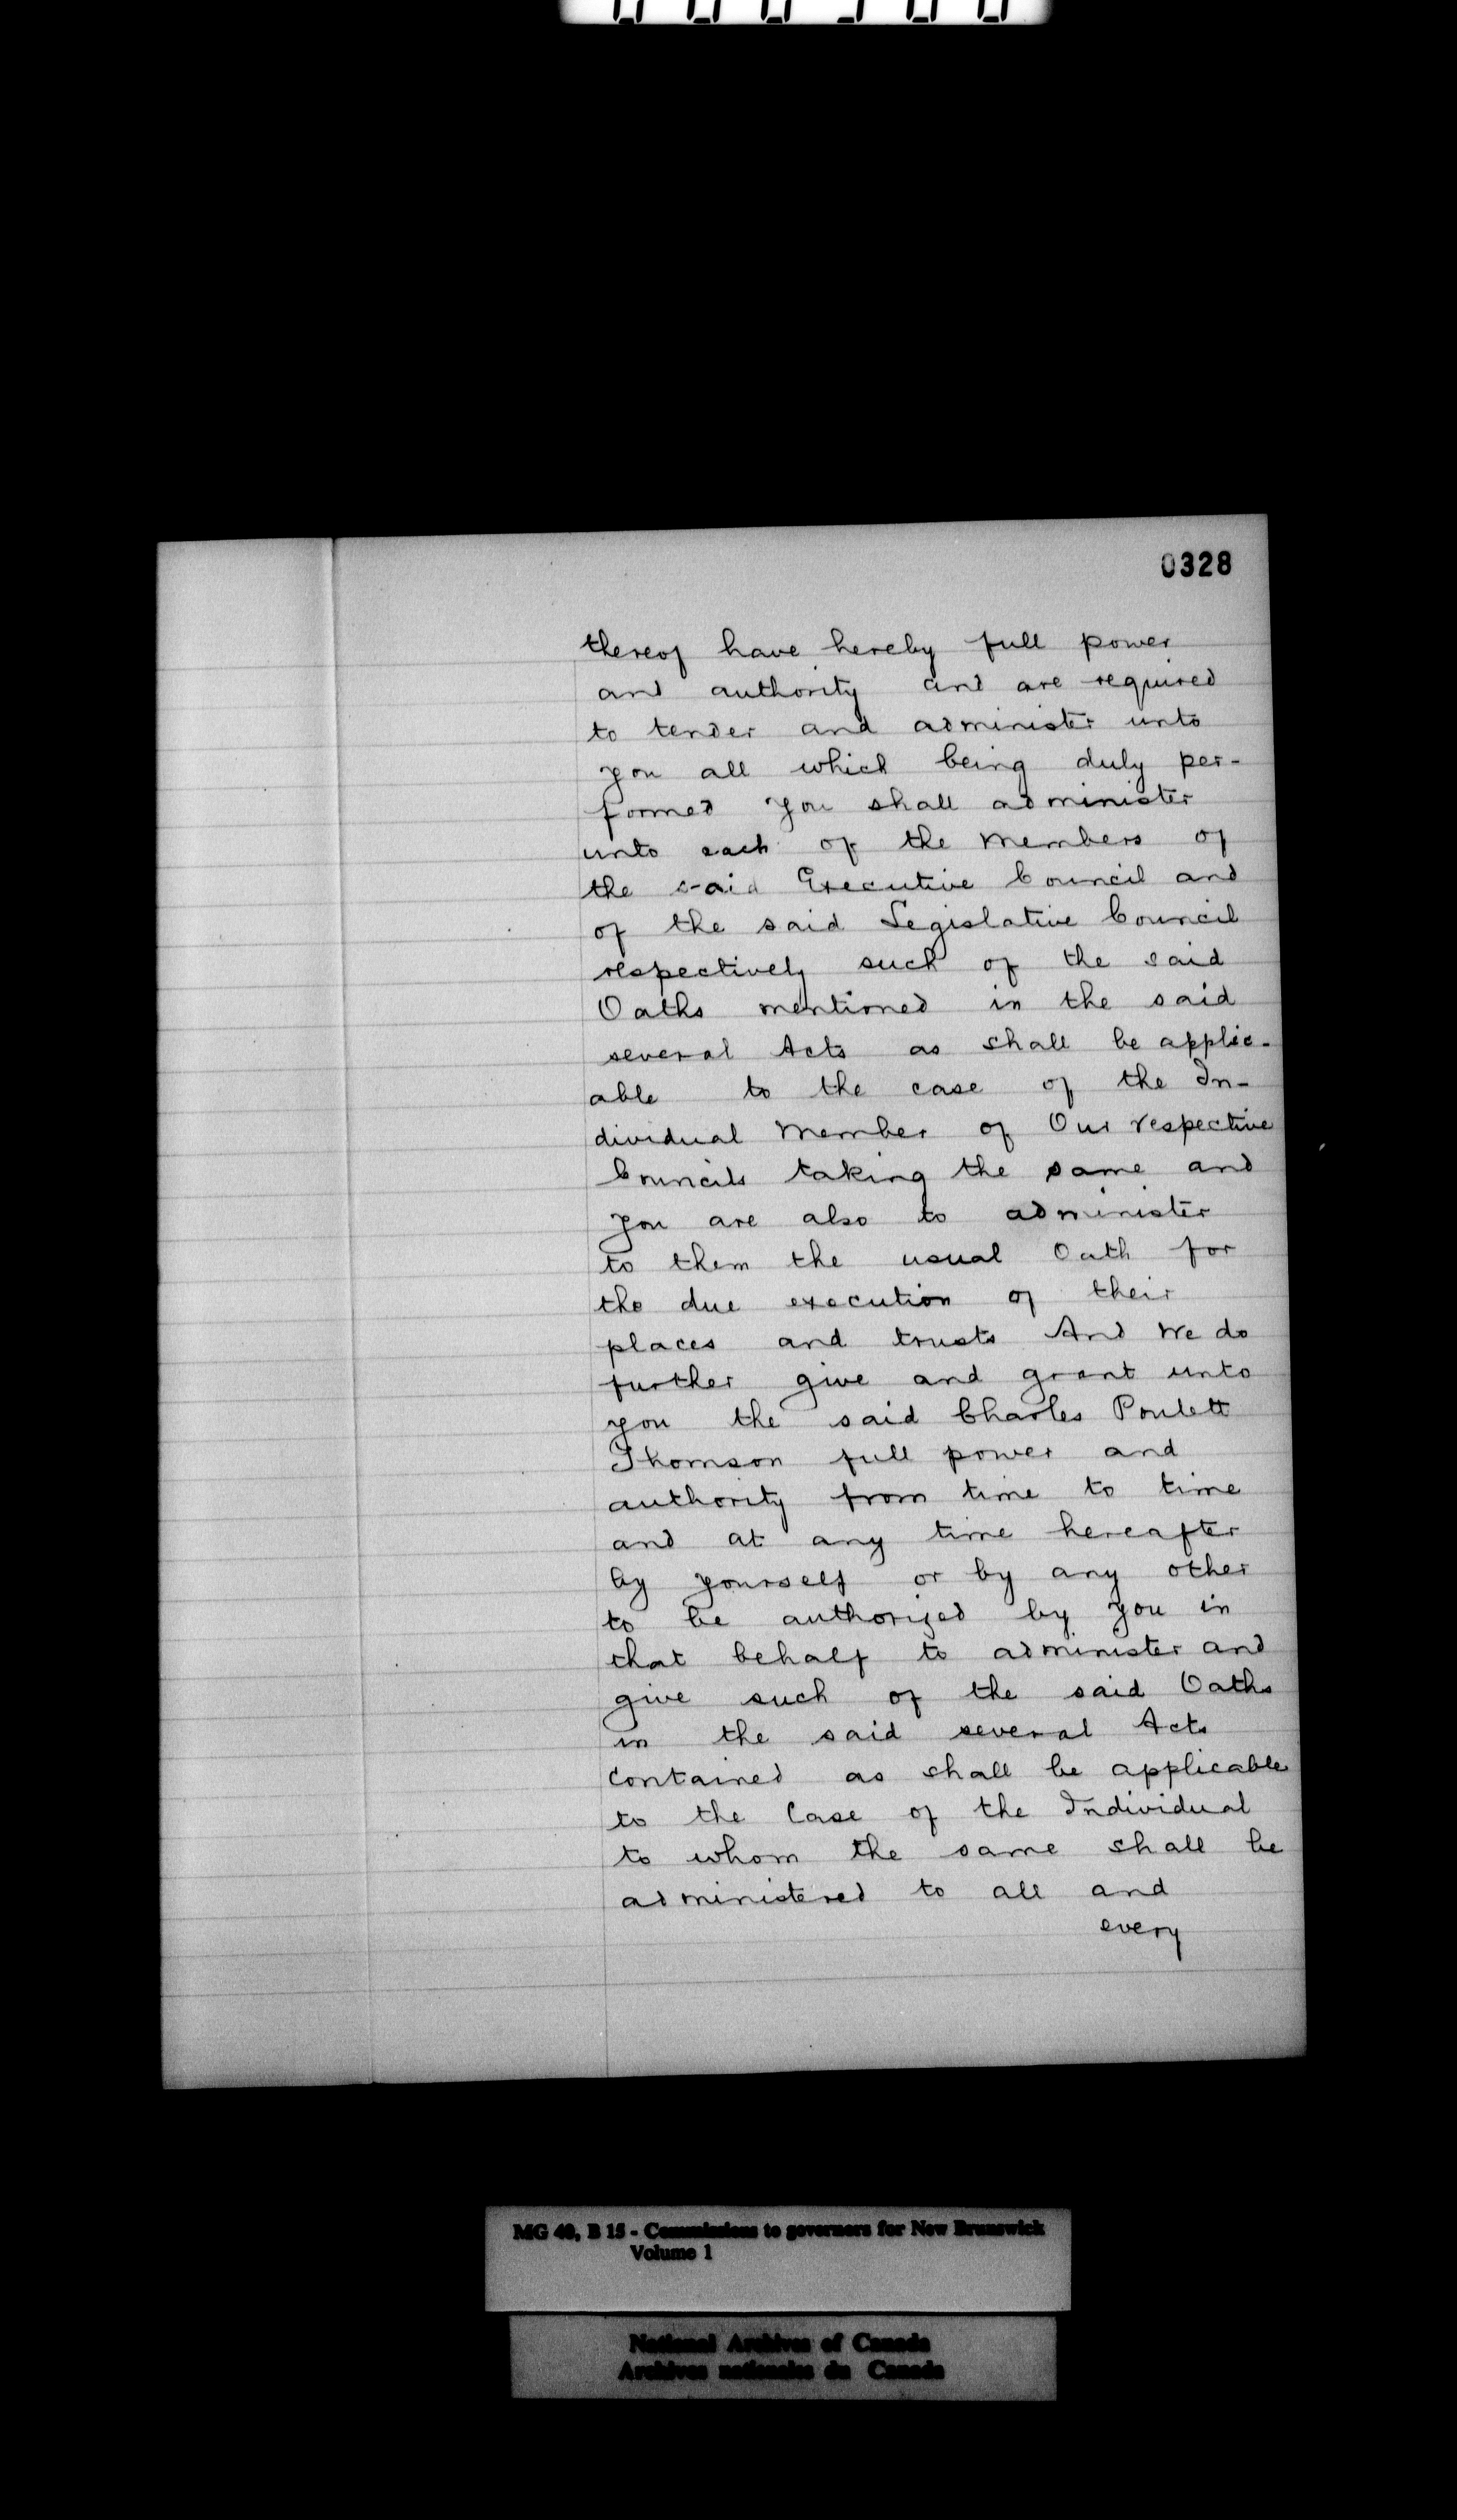 0328
thereof have hereby full power
and authority and are required
to tender and administer unto
you all which being duly per-
formed you shall administer
unto each of the Members of
the said Executive Council and
of the said Legislative Council
respectively such of the said
Oaths mentioned in the said
several Acts as shall be applic-
able to the case of the In-
dividual Member of Our respective
Councils taking the same and
you are also to administer
to them the usual Oath for
the due execution of their
places and trusts And We do
further give and grant unto
you the said Charles Poulett
Thomson full power and
authority from time to time
and at any time hereafter
by yourself or by any other
to be authorized by you in
that behalf to administer and
give such of the said Oaths
in the said several Acts
contained as shall be applicable
to the Case of the Individual
to whom the same shall be
administered to all and
every
MG 40, B 15 - Commissions to governors for New Brunswick
Volume 1
National Archives of Canada
Archives nationales du Canada